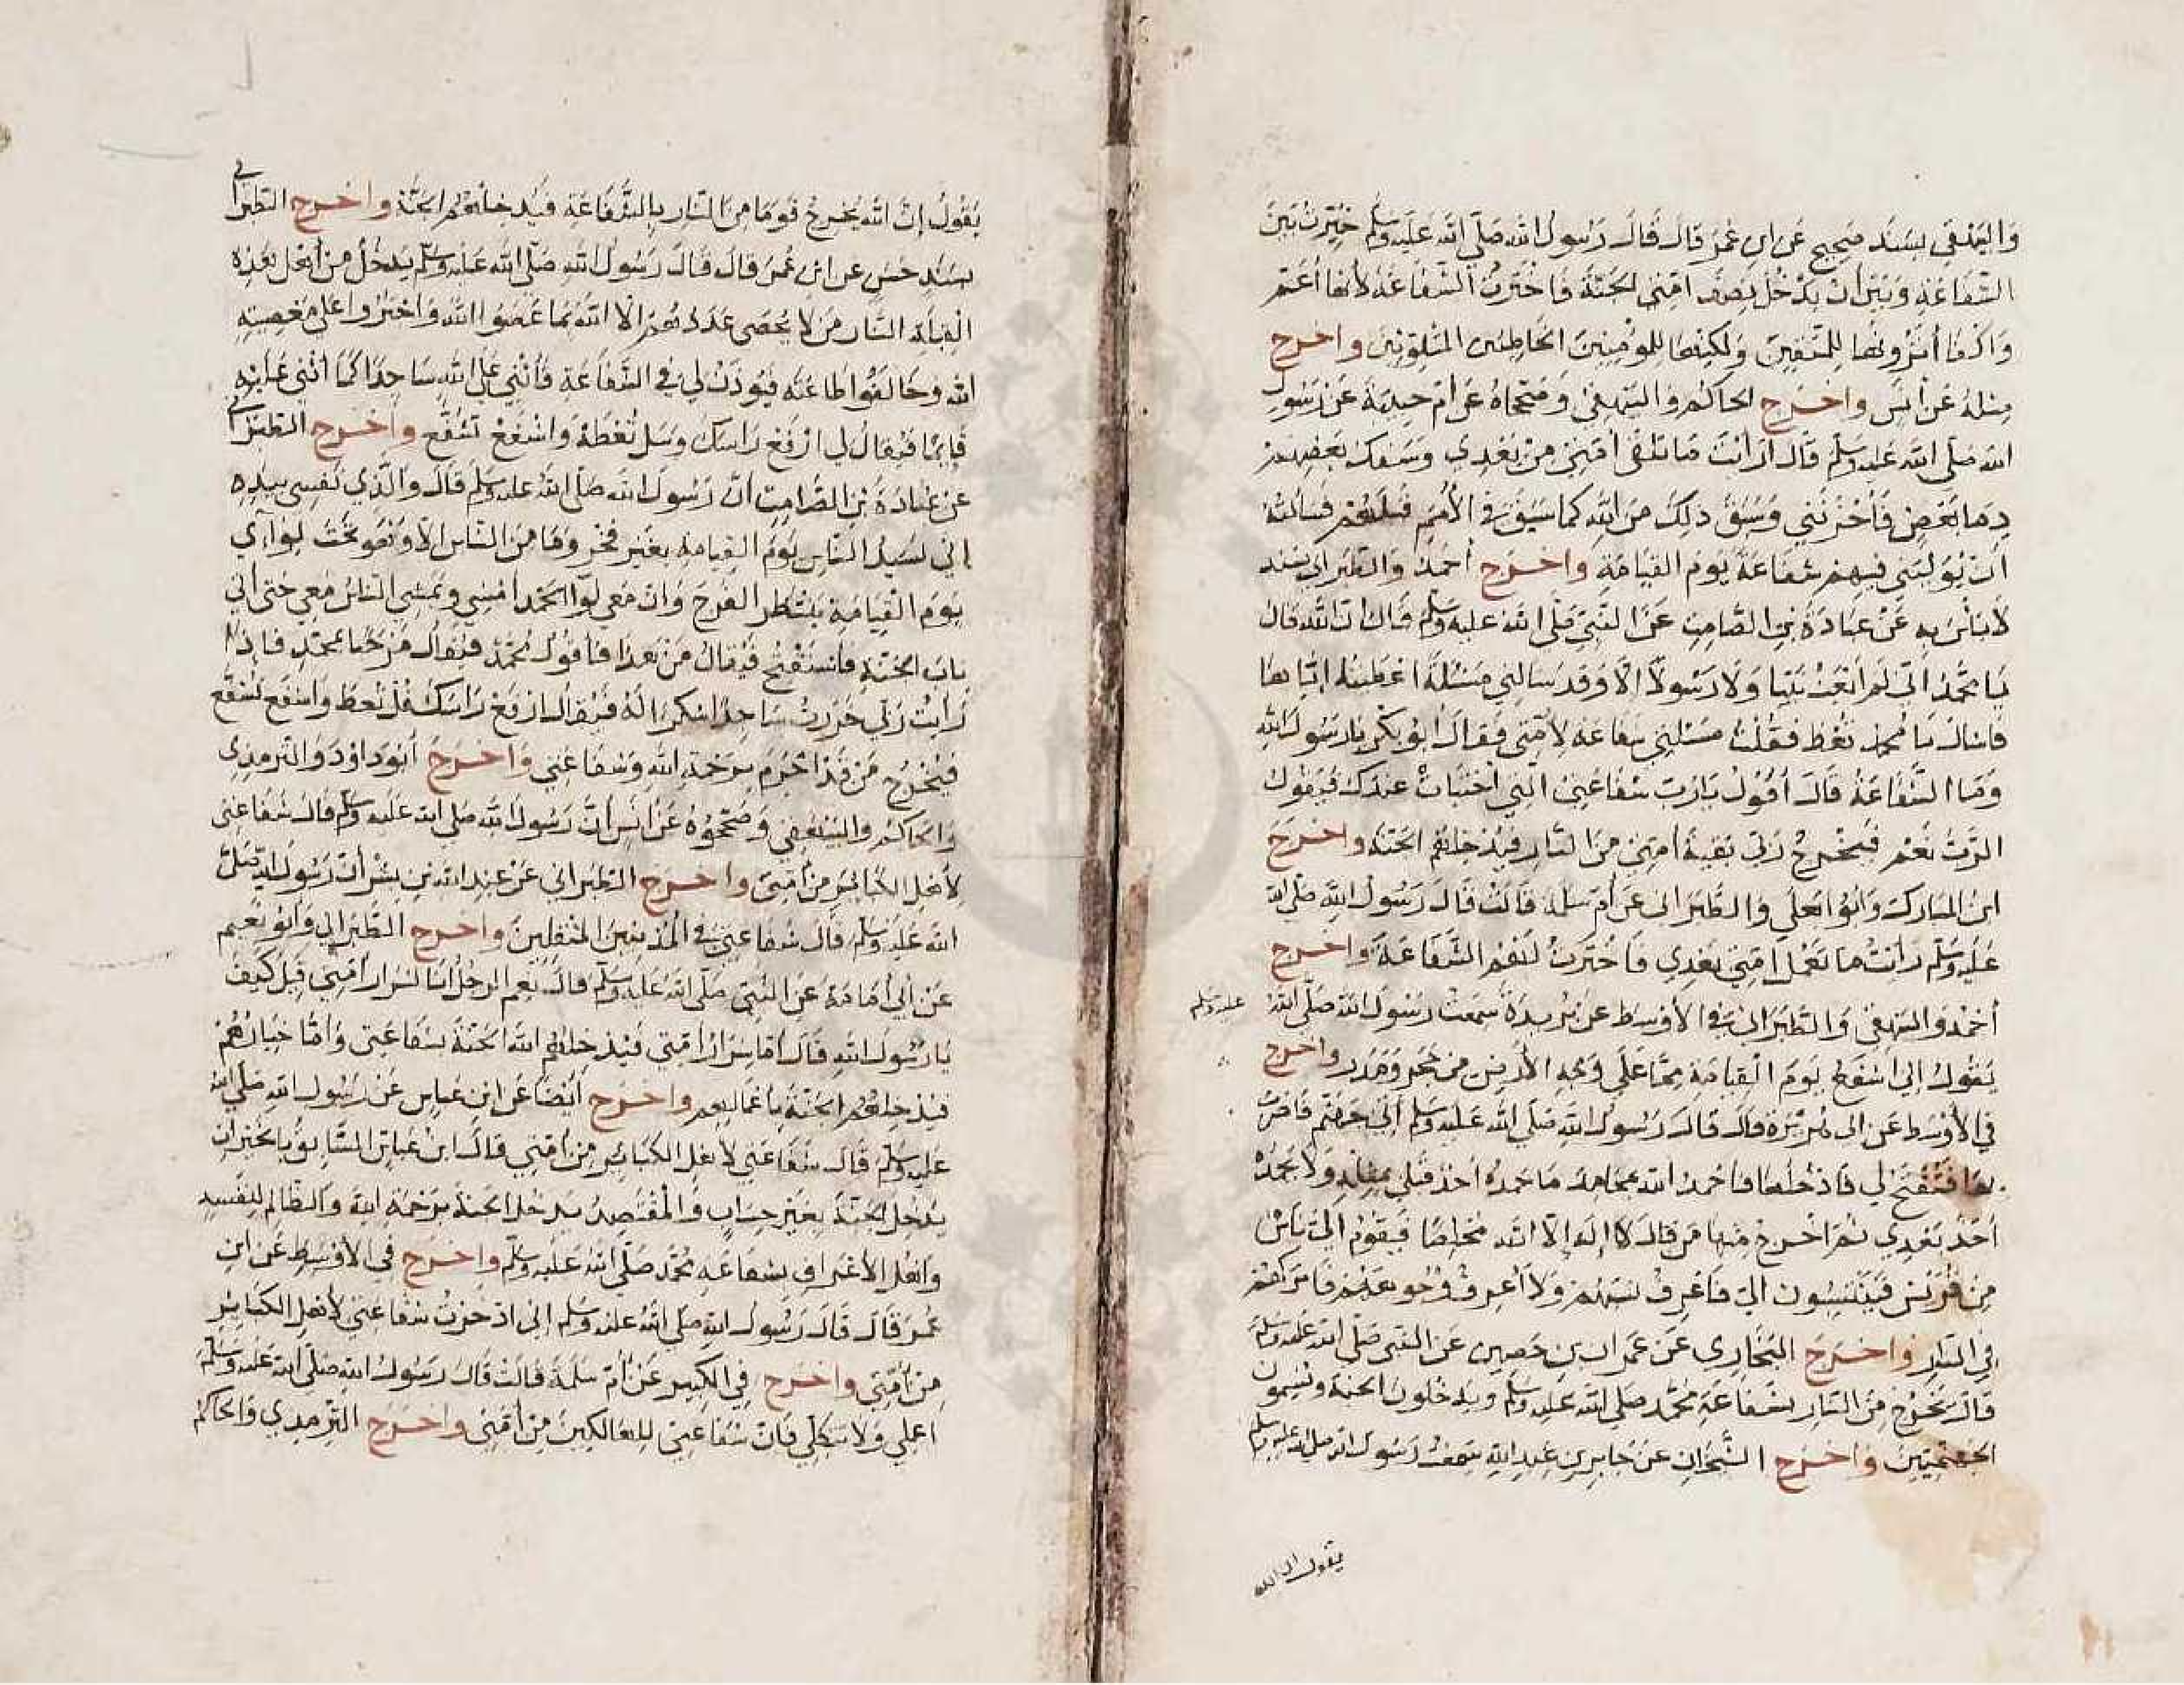 والبيهقي بسند صحيح عن ابن عمر قال قال رسول الله صلى الله عليه وسلم خيرت بين
الشفاعة وبين أن يدخل نصف امتي الجنة فاخترت الشفاعة لأنها أعتم
واكفا أترونها للمتقين ولكنها للمؤمنين الخاطئين المتلوثين واخرج
مثله عن أنس واخرج الحاكم والبيهقي وصححاه عن أم حبيبة عن رسول
الله صلى الله عليه وسلم قال ارأيت ما تلقى أمتي من بعدي وسفك بعضهم
دما بعض فأحزنني وسبق ذلك من الله كما سبق في الأمم قبلهم فسألته
أن يوليني فيهم شفاعة يوم القيامة واخرج أحمد والطبراني بسند
لا بأس به عن عبادة بن الصامت عن النبي صلى الله عليه وسلم قال ان الله قال
يا محمد اني لم أبعث نبيا ولا رسولا الا وقد سالني مسئلة اعطيته إياها
فاسال يا محمد تعط فقلت مسئلتي شفاعة لأمتي فقال أبو بكر يا رسول الله
وما الشفاعة قال أقول يا رب شفاعتي التي اختبأت عندك فيقول
الرب نعم فيخرج ربي بقية أمتي من النار فيدخلهم الجنة واخرج
ابن المبارك وأبو يعلى والطبراني عن أم سلمة قالت قال رسول الله صلى الله
عليه وسلم رأيت ما تعمل أمتي بعدي فاخترت لهم الشفاعة واخرج
أحمد والبيهقي والطبراني في الأوسط عن بريدة سمعت رسول الله صلى الله عليه وسلم
يقول إني اشفع يوم القيامة مما على وجه الأرض من حجر ومدر واخرج
في الأوسط عن ابي هريرة قال قال رسول الله صلى الله عليه وسلم آتي جهنم فاضرب
بها فتفتح لي فادخلها فأحمد الله محامد ما حمده أحد قبلي مثله ولا يحمده
أحد بعدي ثم اخرج منها من قال لا إله إلا الله مخلصا فيقوم إلي ناس
من قريش فينتسبون الي فاعرف نسبهم ولا أعرف وجوههم فاتركهم
في النار واخرج البخاري عن عمران بن حصين عن النبي صلى الله عليه وسلم
قال يخرج من النار بشفاعة محمد صلى الله عليه وسلم ويدخلون الجنة ويسمون
الجهنميين واخرج الشيخان عن جابر بن عبد الله سمعت رسول الله صلى الله عليه وسلم
يقول ان الله
يقول إن الله يخرج قوما من النار بالشفاعة فيدخلهم الجنة واخرج الطبراني
بسند حسن عن ابن عمر قال قال رسول الله صلى الله عليه وسلم يدخل من أهل هذه
القبلة النار من لا يحصى عددهم إلا الله بما عصوا الله واجترؤا على معصية
الله وخالفوا طاعته فيؤذن لي في الشفاعة فأثني على الله ساجدا كما أثني عليه
قايما فيقال لي ارفع راسك وسل تعطه واشفع تشفع واخرج الطبراني
عن عبادة بن الصامت أن رسول الله صلى الله عليه وسلم قال والذي نفسي بيده
اني لسيد الناس يوم القيامة بغير فخر وما من الناس الا وهو تحت لوآءي
يوم القيامة ينتظر الفرج وان معي لوآ الحمد امشي ويمشي الناس معي حتى أتي
باب الجنة فاستفتح فيقال من هذا فأقول محمد فيقال مرحبا بمحمد فاذا
رأيت ربي خررت ساجدا شكرا له فيقال ارفع راسك قل تعط واشفع تشفع
فيخرج من قد اجرم برحمة الله وشفاعتي واخرج أبو داود والترمذي
والحاكم والبيهقي وصححوه عن انس أن رسول الله صلى الله عليه وسلم قال شفاعتي
لأهل الكبائر من أمتي واخرج الطبراني عن عبد الله بن بشر أن رسول الله صلى
الله عليه وسلم قال شفاعتي في المذنبين المثقلين واخرج الطبراني وأبو نعيم
عن أبي أمامة عن النبي صلى الله عليه وسلم قال نعم الرجل أنا لشرار أمتي قيل كيف
يا رسول الله قال أما شرار أمتي فيدخلهم الله الجنة بشفاعتي وأما خيارهم
فيدخلهم الجنة بأعمالهم واخرج أيضا عن ابن عباس عن رسول الله صلى الله
عليه وسلم قال شفاعتي لأهل الكبائر من أمتي قال ابن عباس السابق بالخيرات
يدخل الجنة بغير حساب والمقتصد يدخل الجنة برحمة الله والظالم لنفسه
وأهل الأعراف بشفاعة محمد صلى الله عليه وسلم واخرج في الأوسط عن ابن
عمر قال قال رسول الله صلى الله عليه وسلم إني ادخرت شفاعتي لأهل الكبائر
من أمتي واخرج في الكبير عن أم سلمة قالت قال رسول الله صلى الله عليه وسلم
اعملي ولا تتكلي فان شفاعتي للهالكين من أمتي واخرج الترمذي والحاكم